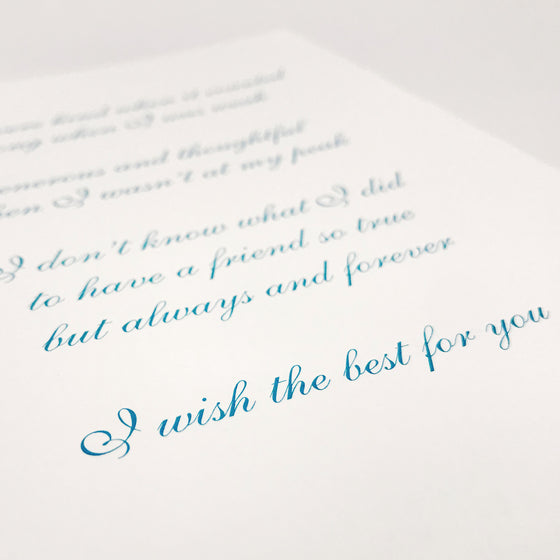 kind when it
when I was weak
and thoughtful
I wasn't at my peak
I don't know what I did
to have a friend so true
but always and forever
I wish the best for you